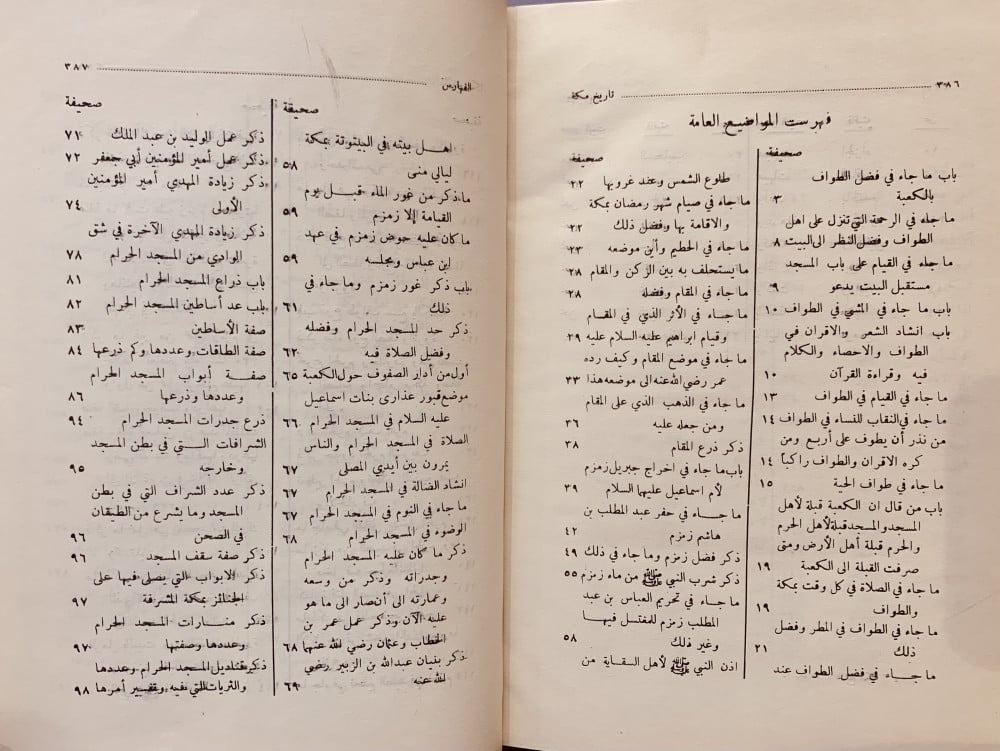 ٣٨٦ تاريخ مكة
فهرست المواضيع العامة
صحيفة
باب ما جاء في فضل الطواف
بالكعبة ٣
ما جاء في الرحمة التي تنزل على اهل
الطواف وفضل النظر الى البيت ٨
ما جاء في القيام على باب المسجد
مستقبل البيت يدعو ٩
باب ما جاء في المشي في الطواف ١٠
باب انشاد الشعر والاقران في
الطواف والاحصاء والكلام
فيه وقراءة القرآن ١٠
ما جاء في القيام في الطواف ١٣
ما جاء في النقاب للنساء في الطواف ١٤
من نذر أن يطوف على أربع ومن
كره الاقران والطواف راكباً ١٤
ما جاء في طواف الحية ١٥
باب من قال ان الكعبة قبلة لأهل
المسجد والمسجد قبلة لأهل الحرم
والحرم قبلة أهل الأرض ومتى
صرفت القبلة الى الكعبة ١٩
ما جاء في الصلاة في كل وقت بمكة
والطواف ١٩
ما جاء في الطواف في المطر وفضل
ذلك ٢١
ما جاء في فضل الطواف عند
صحيفة
طلوع الشمس وعند غروبها ٢٢
ما جاء في صيام شهر رمضان بمكة
والاقامة بها وفضل ذلك ٢٢
ما جاء في الحطيم وأين موضعه ٢٣
ما يستحلف به بين الركن والمقام ٢٨
ما جاء في المقام وفضله ٢٨
ما جاء في الأثر الذي في المقام
وقيام ابراهيم عليه السلام عليه ٢٩
ما جاء في موضع المقام وكيف رده
عمر رضي الله عنه الى موضعه هذا ٣٣
ما جاء في الذهب الذي على المقام
ومن جعله عليه ٣٦
ذكر ذرع المقام ٣٨
باب ما جاء في اخراج جبريل زمزم
لأم اسماعيل عليهما السلام ٣٩
ما جاء في حفر عبد المطلب بن
هاشم زمزم ٤٢
ذكر فضل زمزم وما جاء في ذلك ٤٩
ذكر شرب النبي ﷺ من ماء زمزم ٥٥
ما جاء في تحريم العباس بن عبد
المطلب زمزم للمغتسل فيها
وغير ذلك ٥٨
اذن النبي ﷺ لأهل السقاية من
الفهارس ٣٨٧
صحيفة
اهل بيته في البيتوتة بمكة
ليالي منى ٥٨
ما ذكر من غور الماء قبل يوم
القيامة إلا زمزم ٥٩
ما كان عليه حوض زمزم في عهد
ابن عباس ومجلسه ٥٩
باب ذكر غور زمزم وما جاء في
ذلك ٦١
ذكر حد المسجد الحرام وفضله
وفضل الصلاة فيه ٦٢
أول من أدار الصفوف حول الكعبة ٦٥
موضع قبور عذارى بنات اسماعيل
عليه السلام في المسجد الحرام ٦٦
الصلاة في المسجد الحرام والناس
يمرون بين أيدي المصلى ٦٧
انشاد الضالة في المسجد الحرام ٦٧
ما جاء في النوم في المسجد الحرام ٦٧
الوضوء في المسجد الحرام ٦٨
ذكر ما كان عليه المسجد الحرام
وجدراته وذكر من وسعه
وعمارته الى أن صار الى ما هو
عليه الآن وذكر عمل عمر بن
الخطاب وعثمان رضي الله عنهما ٦٨
ذكر بنيان عبدالله بن الزبير رضي
الله عنه ٦٩
صحيفة
ذكر عمل الوليد بن عبد الملك ٧١
ذكر عمل أمير المؤمنين أبي جعفر ٧٢
ذكر زيادة المهدي أمير المؤمنين
الأولى ٧٤
ذكر زيادة المهدي الآخرة في شق
الوادي من المسجد الحرام ٧٨
باب ذراع المسجد الحرام ٨١
باب عد أساطين المسجد الحرام ٨٢
صفة الأساطين ٨٣
صفة الطاقات وعددها وكم ذرعها ٨٤
صفة أبواب المسجد الحرام
وعددها وذرعها ٨٦
ذرع جدرات المسجد الحرام ٩٤
الشرافات التي في بطن المسجد
وخارجه ٩٥
ذكر عدد الشراف التي في بطن
المسجد وما يشرع من الطيقان
في الصحن ٩٦
ذكر صفة سقف المسجد ٩٦
ذكر الابواب التي يصلى فيها على
الجنائز بمكة المشرفة ٩٧
ذكر منارات المسجد الحرام
وعددها وصفتها ٩٧
ذكر قناديل المسجد الحرام وعددها
والثريات التي فيه وتفسير أمرها ٩٨